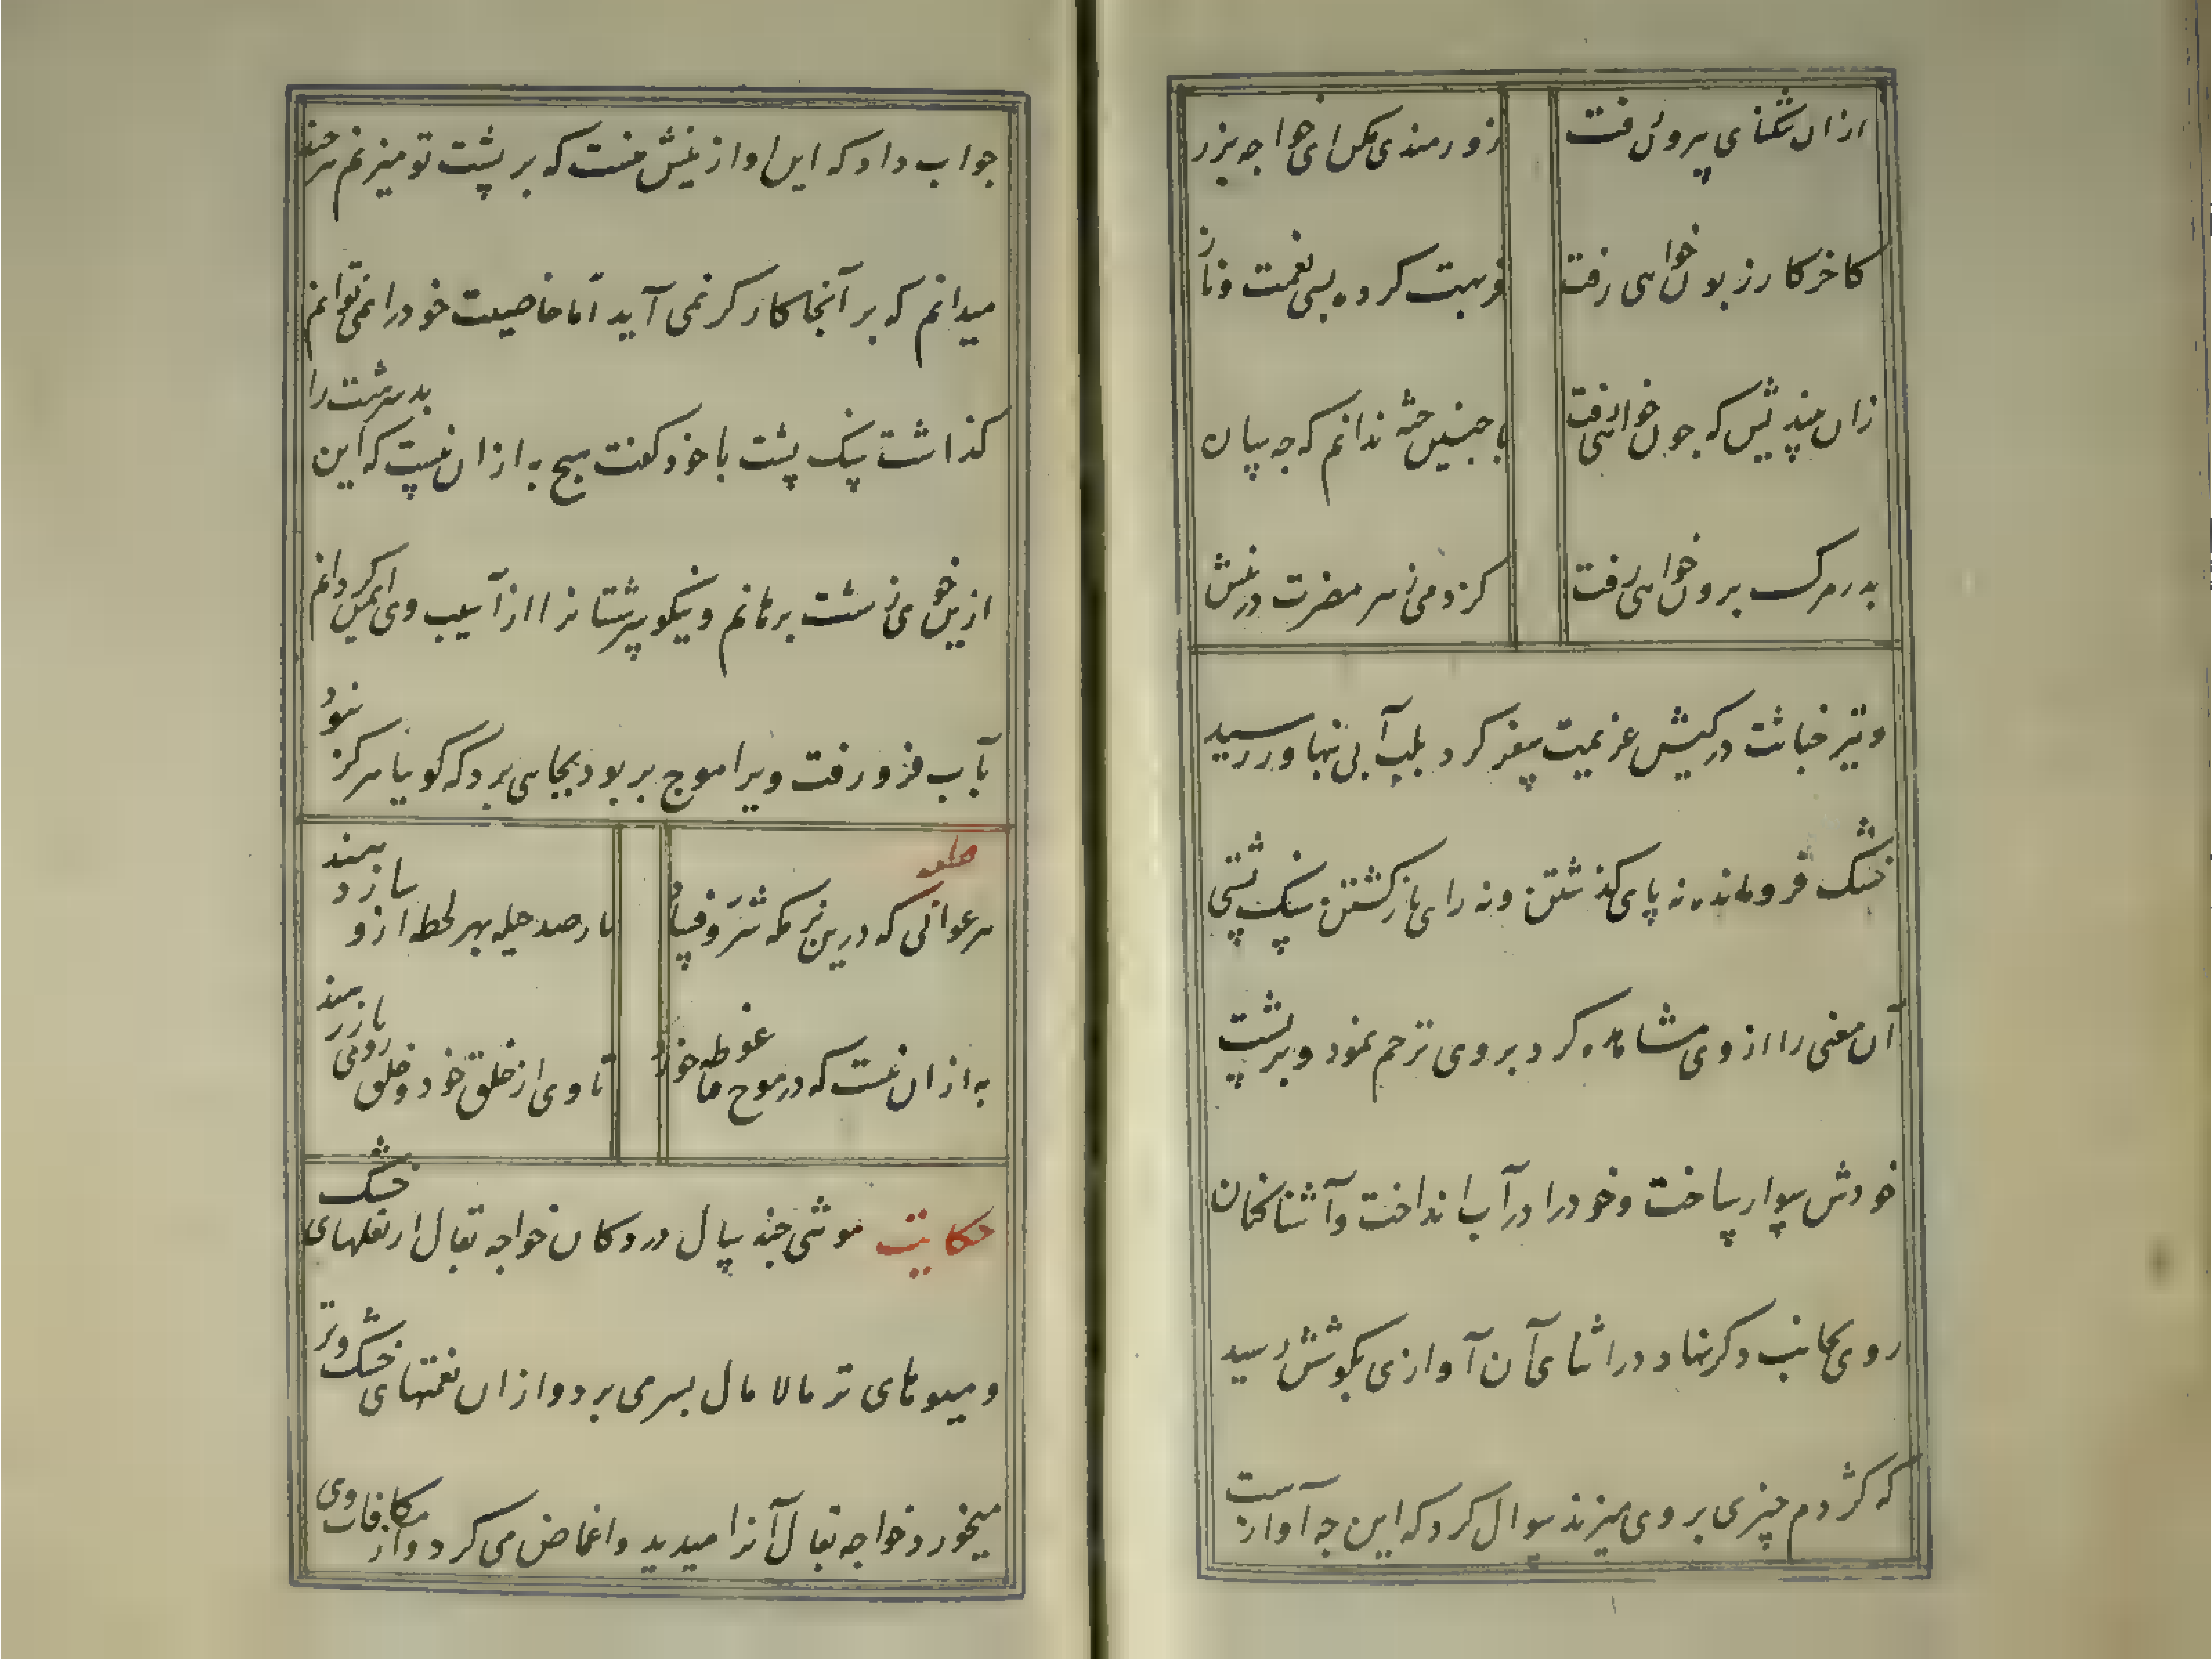 ازان تنکنای بیرون رفت
زورمندی مکن ای خواجه بزر
کاخر کار زبون خواهی رفت
فربهت کرده بسی نعمت و ناز
زان میندیش که چون خواهی رفت
با جنین جثه ندانم که جه سان
بدر مرک برون خواهی رفت
کزدمی زهر مضرت در نیش
و تیر خباثت در کیش عزیمت سفر کرد بلب آبی بنهاور رسید
خشک فرومانده نه پای کذشتن و نه رای بازکشتن سنک پشتی
آن معنی را از وی مشاهده کرد بر وی ترحم نمود و بر پشت
خودش سوار ساخت و خود را در آب انداخت و آشناکنان
روی بجانب دکر نهاد در اثنای آن آوازی بکوشش رسید
که کژدم چیزی بر وی میزند سوال کرد که این جه آوازست
جواب داد که این اواز نیش منست که بر پشت تو میزنم هرجند
میدانم که بر آنجا کارکر نمی آید اما خاصیت خود را نمی توانم
کذاشت سنک پشت با خود کفت هیج به ازان نیست که این بدسرشت را
ازین خوی زشت برهانم و نیکو سرشتانرا از آسیب وی ایمن کردانم
بآب فرو رفت ویرا موج بربود بجایی برد که کویا هرکز نبود
هر عوانی که درین بزمکه شر و فساد
تار صد حیله بهر لحظه ازو ساز دهند
به ازان نیست که در موج فنا غوطه خورد
تا وی از خلق خود و خلق ز وی باز رهند
حکایت موشی جند سال در دکان خواجه بقال از نقلهای خشک
و میوهای تر مالامال بسر می برد و ازان نعمتهای خشک و تر
میخورد خواجه بقال آنرا میدید و اغماض می کرد و از مکافات وی